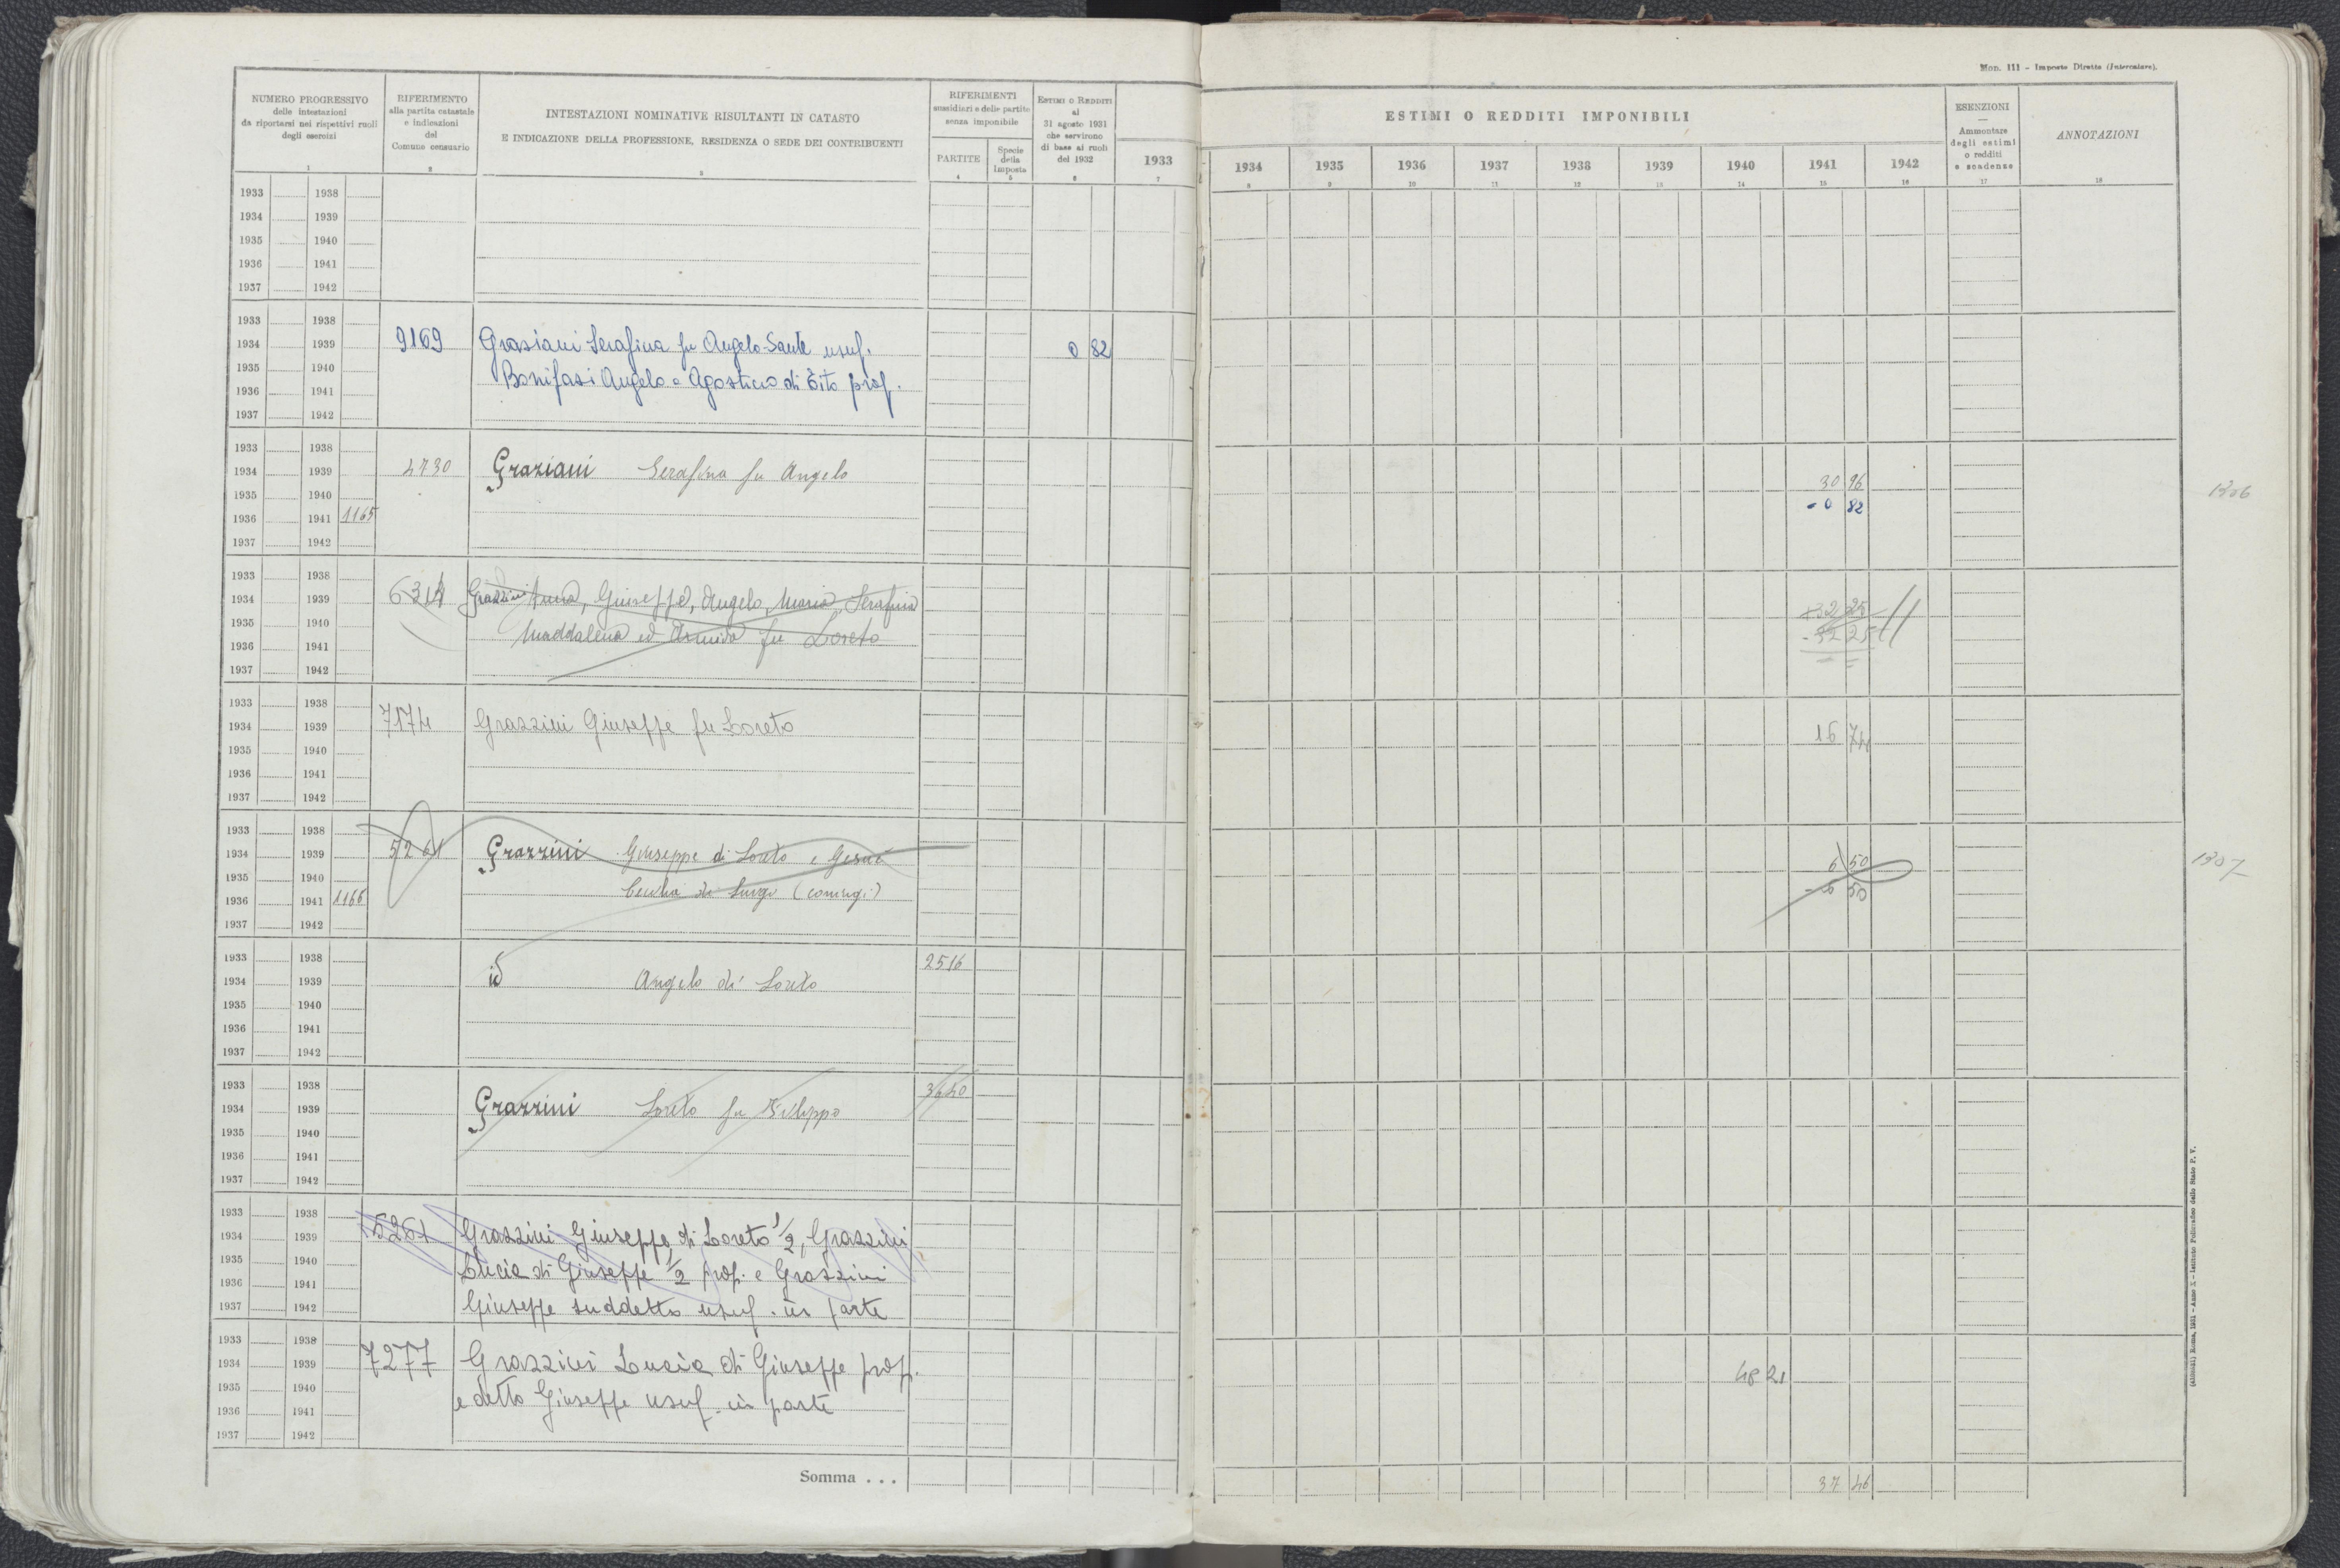 Mod. 111 - Imposte Dirette (Intercalare).
NUMERO PROGRESSIVO
delle intestazioni
da riportarsi nei rispettivi ruoli
degli esercizi
1
RIFERIMENTO
alla partita catastale
e indicazioni
del
Comune censuario
2
INTESTAZIONI NOMINATIVE RISULTANTI IN CATASTO
E INDICAZIONE DELLA PROFESSIONE, RESIDENZA O SEDE DEI CONTRIBUENTI
3
RIFERIMENTI
sussidiari e delle partite
senza imponibile
PARTITE
4
Specie
della
Imposta
5
ESTIMI O REDDITI
al
31 agosto 1931
che servirono
di base ai ruoli
del 1932
6
ESTIMI O REDDITI IMPONIBILI
1933 1934 1935 1936 1937 1938 1939 1940 1941 1942
7 8 9 10 11 12 13 14 15 16
ESENZIONI
—
Ammontare
degli estimi
o redditi
e scadenze
17
ANNOTAZIONI
18
1933 1938
1934 1939
1935 1940
1936 1941
1937 1942
1933 1938
1934 1939 9169 Grasiani Serafina fu Angelo Sante usuf. 0 82
1935 1940 Bonifasi Angelo e Agostino di Tito prop.
1936 1941
1937 1942
1933 1938
1934 1939 4730 Graziani Serafina fu Angelo 30 96
1935 1940 1306
1936 1941 1165 - 0 82
1937 1942
1933 1938
1934 1939 6314 Grazzini Anna, Giuseppe, Angelo, Maria, Serafina +32 25
1935 1940 Maddalena ed Armida fu Loreto - 32 25
1936 1941
1937 1942
1933 1938
1934 1939 7174 Grazzini Giuseppe fu Loreto 16 74
1935 1940
1936 1941
1937 1942
1933 1938
1934 1939 5261 Grazzini Giuseppe di Loreto e Gesuè 6 50 1307
1935 1940
1936 1941 1166 di Luigi (coniugi) - 6 50
1937 1942
1933 1938 2516
1934 1939 id Angelo di Loreto
1935 1940
1936 1941
1937 1942
1933 1938 3640
1934 1939 Grazzini Loreto fu Filippo
1935 1940
1936 1941
1937 1942
1933 1938
1934 1939 5261 Grazzini Giuseppe di Loreto 1/2, Grazzini
1935 1940 Lucia di Giuseppe 1/2 prop. e Grazzini
1936 1941
1937 1942 Giuseppe suddetto usuf. in parte
1933 1938
1934 1939 7277 Grazzini Lucia di Giuseppe prop. 48 21
1935 1940
1936 1941 e detto Giuseppe usuf. in parte
1937 1942
Somma . . . 37 46
Roma, 1931 - Anno X - Istituto Poligrafico dello Stato P. V.